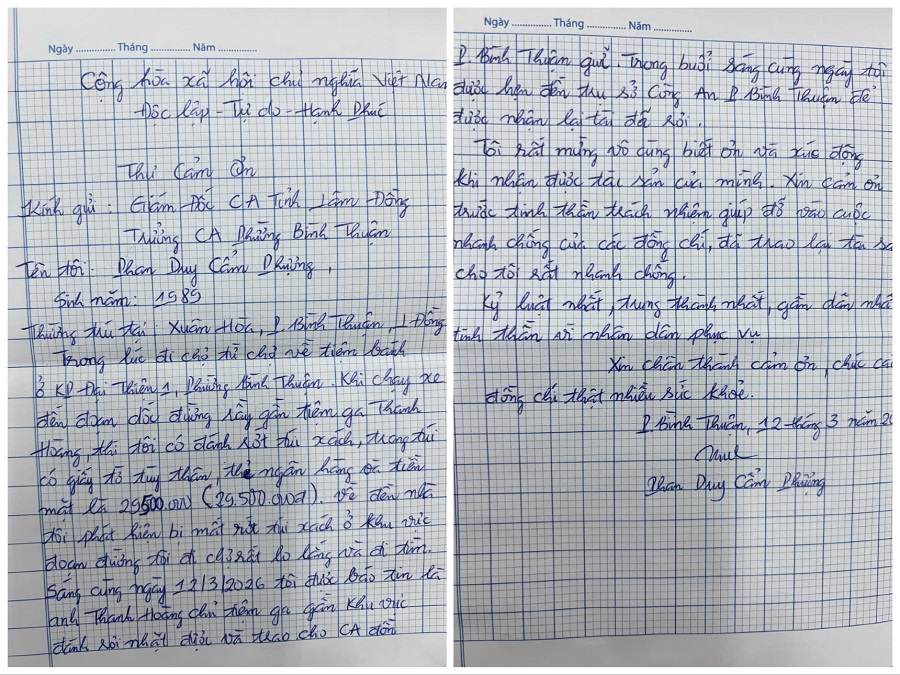 Ngày .............. Tháng .............. Năm ..............
Cộng hòa xã hội chủ nghĩa Việt Nam
Độc lập - Tự do - Hạnh Phúc
Thư Cảm Ơn
Kính gửi : Giám Đốc CA Tỉnh Lâm Đồng
Trưởng CA Phường Bình Thuận
Tên tôi: Phan Duy Cẩm Phượng,
Sinh năm: 1989
Thường trú tại: Xuân Hòa, P. Bình Thuận, L Đồng
Trong lúc đi chợ từ chợ về tiệm bánh
ở KP Đại Thiên 1, Phường Bình Thuận. Khi chạy xe
đến đoạn dốc đường rầy gần tiệm ga Thanh
Hoàng, thì tôi có đánh rớt túi xách, trong túi
có giấy tờ tùy thân, thẻ ngân hàng và tiền
mặt là 29500.000 (29.500.000đ). Về đến nhà
tôi phát hiện bị mất rớt túi xách ở khu vực
đoạn đường tôi đi chợ rất lo lắng và đi tìm.
Sáng cùng ngày 12/3/2026 tôi được báo tin là
anh Thanh Hoàng chủ tiệm ga gần khu vực
đánh rơi nhặt được và trao cho CA đồn
Ngày .............. Tháng .............. Năm ..............
P. Bình Thuận giữ. Trong buổi sáng cùng ngày tôi
được hẹn đến trụ sở Công An P Bình Thuận để
được nhận lại tài đã rơi.
Tôi rất mừng vô cùng biết ơn và xúc động
khi nhận được tài sản của mình. Xin cảm ơn
trước tinh thần trách nhiệm giúp đỡ vào cuộc
nhanh chóng của các đồng chí, đã trao lại tài sả
cho tôi rất nhanh chóng.
Kỷ luật nhất, trung thành nhất, gần dân nhấ
tinh thần vì nhân dân phục vụ
Xin chân thành cảm ơn, chúc các
đồng chí thật nhiều sức khỏe.
P Bình Thuận, 12 tháng 3 năm 20
Phan Duy Cẩm Phượng